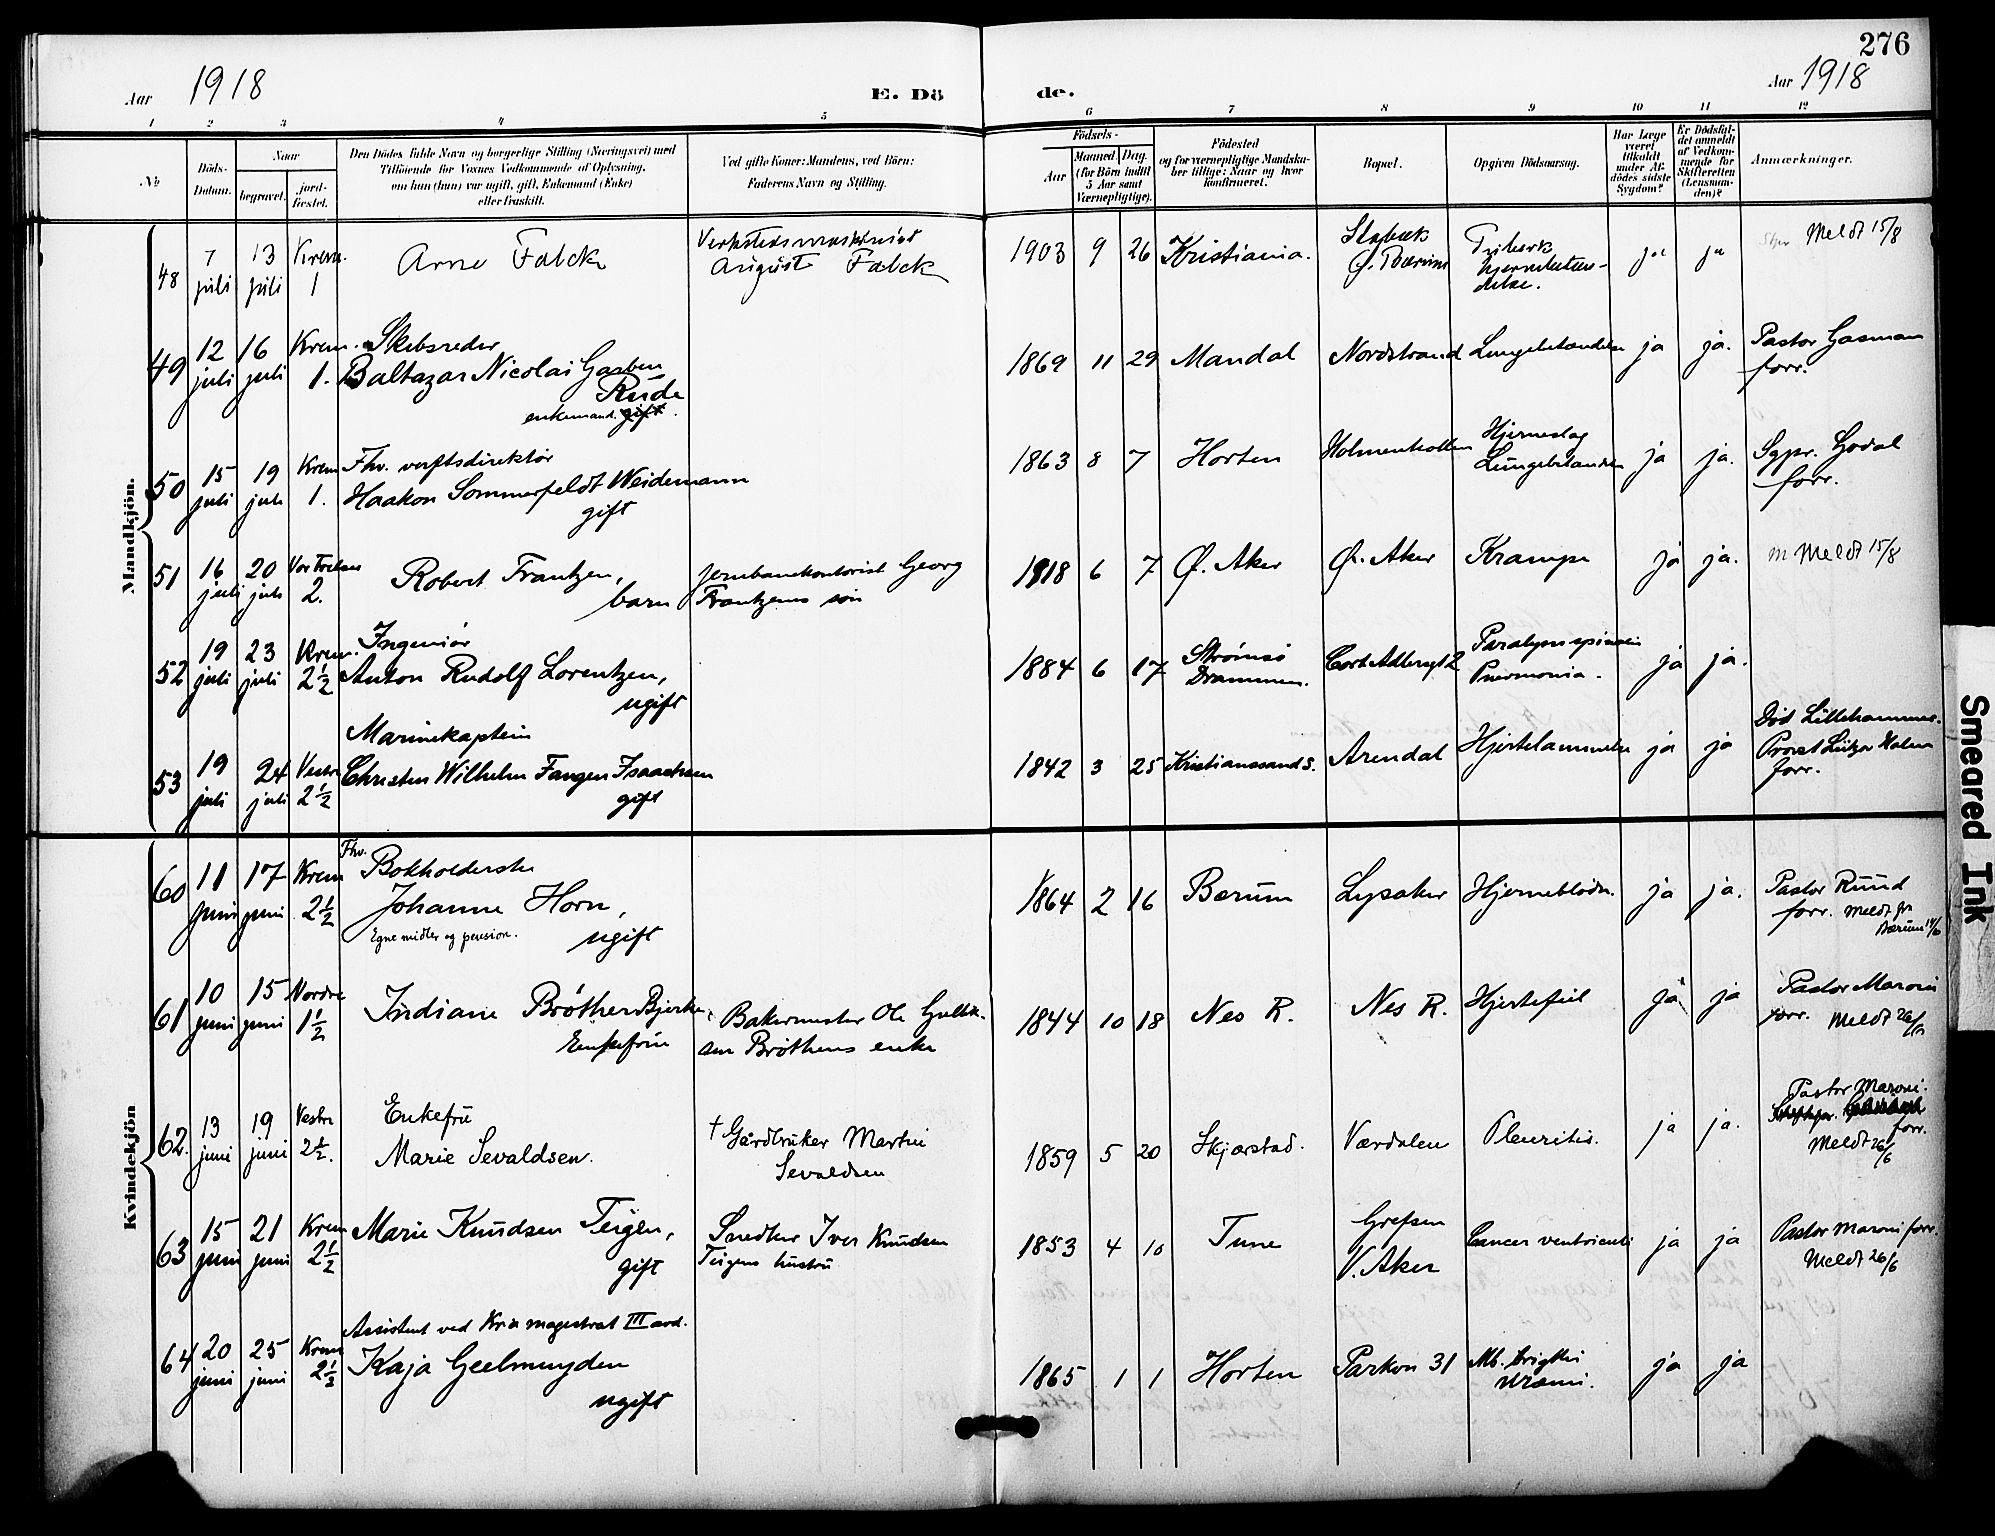 276
Aar 1918
E. Döde.
Aar 1918
1 2 3 4 5 6 7 8 9 10 11 12
No
Döds-Datum.
Naar
begravet.
jord-fæstet.
Den Dödes fulde Navn og borgerlige Stilling (Næringsvei) med
Tilföiende for Voxnes Vedkommende af Oplysning,
om han (hun) var ugift, gift, Enkemand (Enke)
eller fraskilt.
Ved gifte Koner: Mandens, ved Börn:
Faderens Navn og Stilling.
Födsels-
Aar
Maaned. Dag.
(for Börn indtil
5 Aar samt
Værnepligtige).
Födested
og for værnepligtige Mandska-
ber tillige: Naar og hvor
konfirmeret.
Bopæl.
Opgiven Dödsaarsag.
Har Læge
været
tilkaldt
under Af-
dödes sidste
Sygdom?
Er Dödsfal-
det anmeldt
af Vedkom-
mende for
Skifteretten
(Lensman-
den)?
Anmærkninger.
Mandkjön.
48 7 juli 13 juli Krem. 1 Arne Falck
August Falck
1903 9 26 Kristiania. Stabæk Ø. Bærum ja ja Meldt 15/8
49 12 juli 16 juli Krem. 1. Skibsreder
Baltazar Nicolai Garben
Rude
enkemand. gift.
1869 11 29 Mandal Nordstrand Lungebetændelse ja ja. Pastor Gasman
forr.
50 15 juli 19 juli Krem 1. Fhv. verftsdirektør
Haakon Sommerfeldt Weidemann
gift
1863 8 7 Horten Holmenkollen Hjerneslag
Lungebetændelse ja ja. Sgpr. Godal
forr.
51 16 juli 20 juli Vor Frelser 2. Robert Frantzen,
barn
jernbanekontorist Georg
Frantzens søn
1918 6 7 Ø. Aker Ø. Aker Krampe ja ja. Meldt 15/8
52 19 juli 23 juli Krem. 2½ Ingeniør
Anton Rudolf Lorentzen,
ugift
1884 6 17 Strømsø
Drammen. Cort Adlersgt 2
Pneumonia. ja ja.
53 19 juli 24 juli Vestre 2½ Marinekaptein
Christen Wilhelm Fangen Isaachsen
gift
1842 3 25 Kristianssand S. Arendal Hjertelammelse ja ja Død Lillehammer.
Provst Lützow Holm
forr.
Kvindekjön
60 11 juni 17 juni Krem 2½ Fhv. Bokholderske
Johanne Horn,
Egne midler og pension. ugift
1864 2 16 Bærum Lysaker Hjerneblødn. ja ja. Pastor Ruud
forr. Meldt fr
Bærum
61 10 juni 15 juni Nordre 1½ Indiane Brøthen Bjerke,
Enkefru
Bakermester Ole Gulbk-
sen Brøthens enke
1844 10 18 Nes R. Nes R. Hjertefeil ja ja Pastor Maroni
forr. Meldt 26/6
62. 13 juni 19 juni Vestre 2½. Enkefru
Marie Sevaldsen.
† Gårdbruker Martin
Sevaldsen
1859 5 20 Skjerstad. Værdalen Pleuritis. ja ja. Pastor Maroni.
forr.
Meldt 26/6
63 15 juni 21 juni Krem 2½ Marie Knudsen Teigen,
gift
Snedker Iver Knudsen
Teigens hustru
1853 4 10 Tune Grefsen
V. Aker Cancer ventriculi ja ja Pastor Maroni forr.
Meldt 26/6
64 20 juni 25 juni Krem 2½ Assistent ved Kria magistrat III avd.
Kaja Geelmuyden
ugift
1865 1 1 Horten Parkvn 31 Mb. brigthii
uræmi. ja ja
Smeared Ink